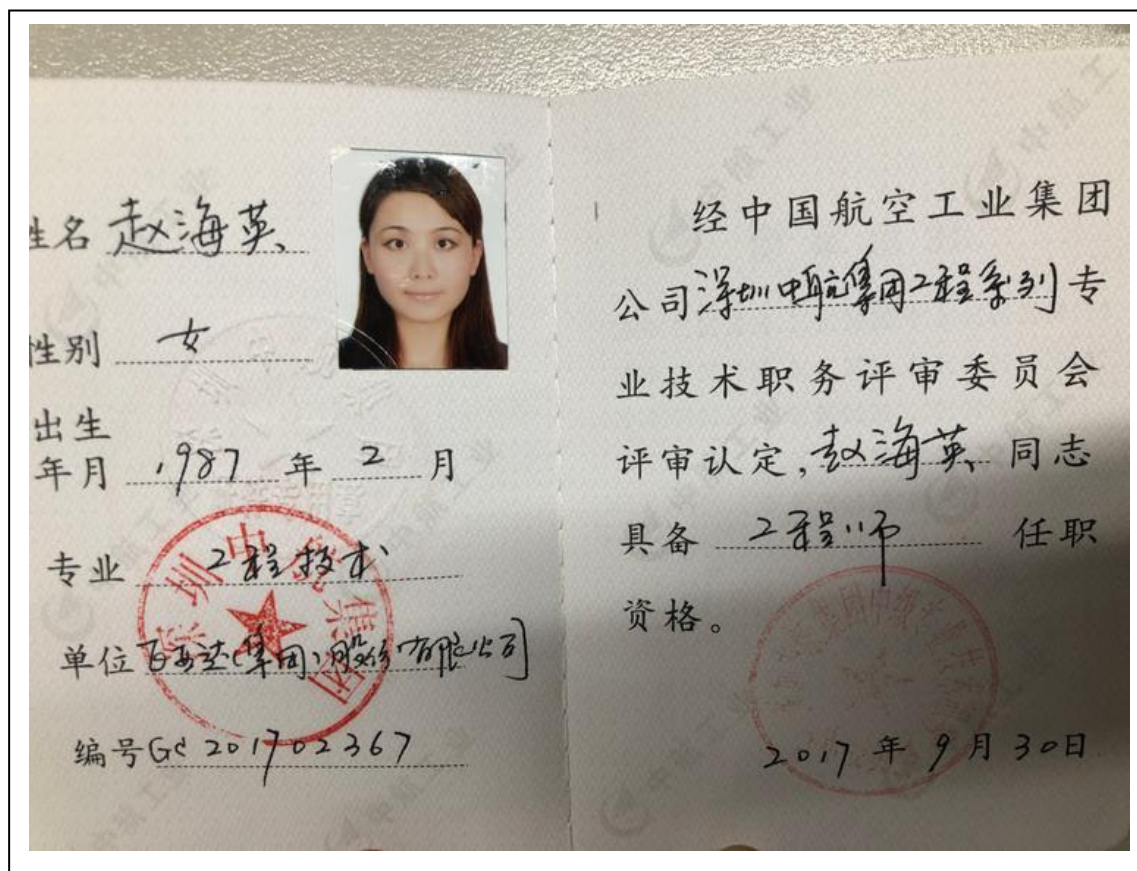 姓名 赵海英
性别 女
出生
年月 1987 年 2 月
专业 工程技术
单位 飞亚达(集团)股份有限公司
编号 GC201702367
深圳中航集团
证件专用章
经中国航空工业集团
公司深圳中航集团工程系列专
业技术职务评审委员会
评审认定,赵海英 同志
具备 工程师 任职
资格。
2017 年 9 月 30日
中航工业